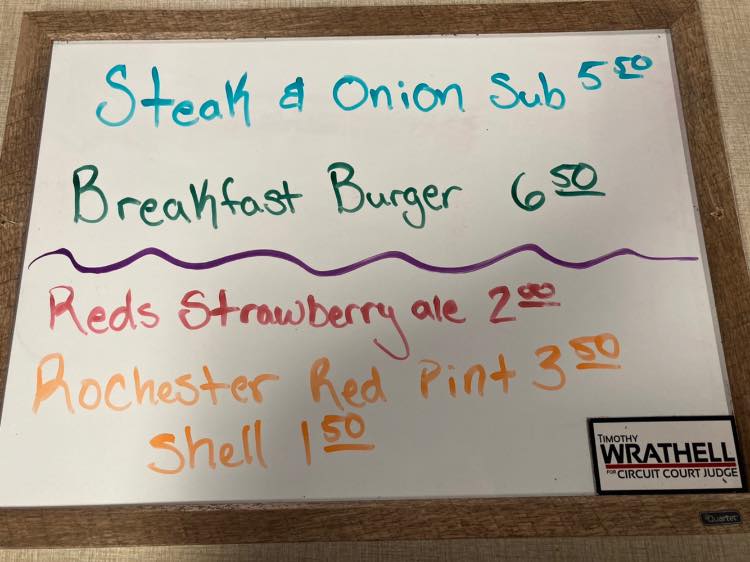 Steak & Onion Sub 5 50
Breakfast Burger 6 50
Reds Strawberry ale 2 00
Rochester Red Pint 3 50
Shell 1 50
TIMOTHY
WRATHELL
FOR CIRCUIT COURT JUDGE
Quartet